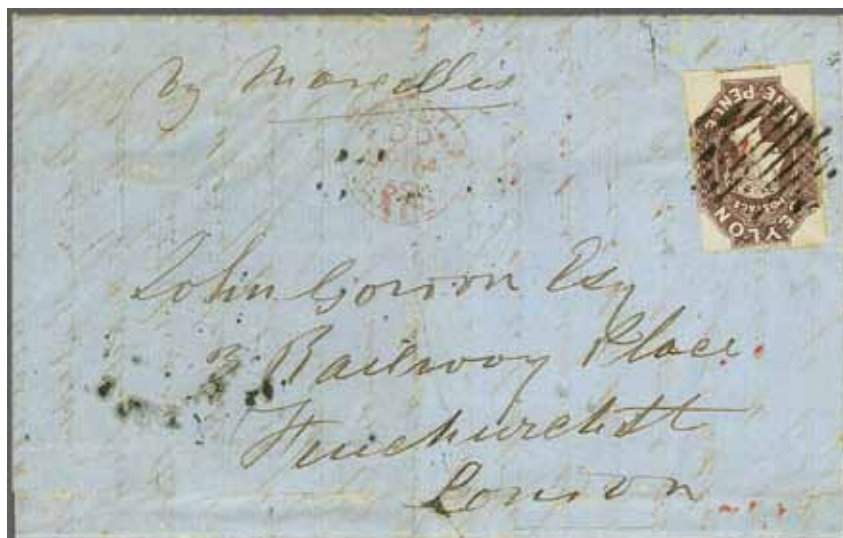 by Marseilles
CEYLON
POSTAGE
NINE PENCE
John Gordon Esq
3 Railway Place
Fenchurch St
London